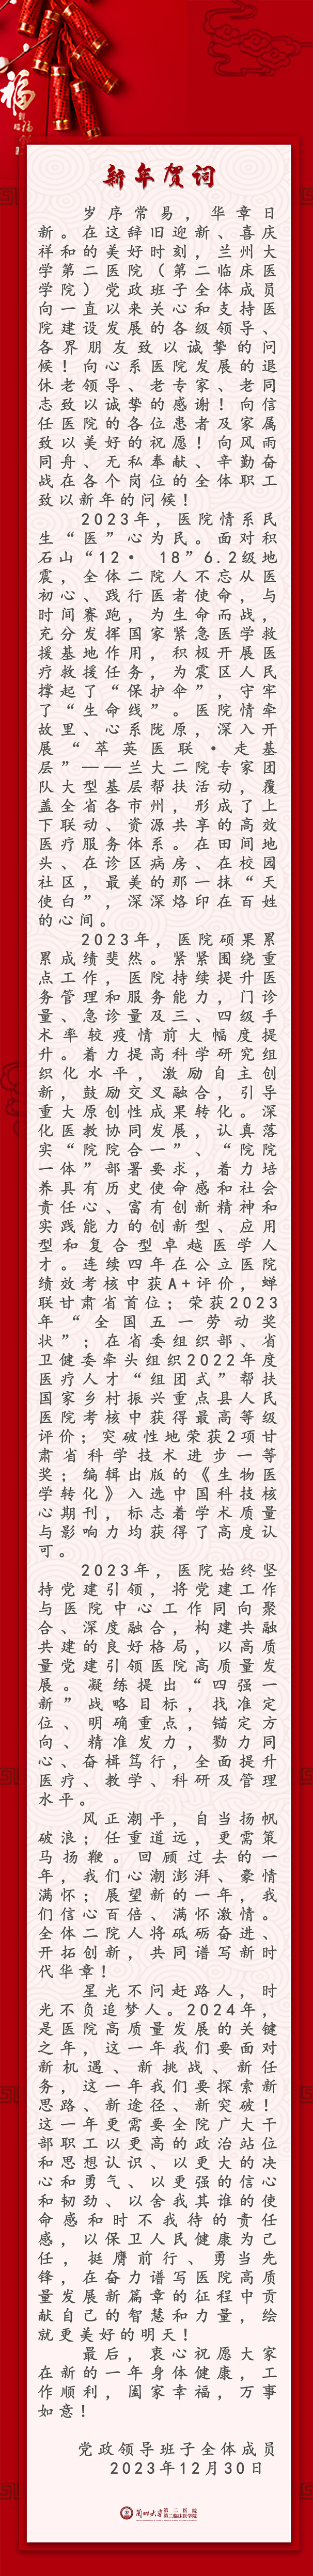 福
新年贺词
岁序常易，华章日
新。在这辞旧迎新、喜庆
祥和的美好时刻，兰州大
学第二医院（第二临床医
学院）党政班子全体成员
向一直以来关心和支持医
院建设发展的各级领导、
各界朋友致以诚挚的问
候！向心系医院发展的退
休老领导、老专家、老同
志致以诚挚的感谢！向信
任医院的各位患者及家属
致以美好的祝愿！向风雨
同舟、无私奉献、辛勤奋
战在各个岗位的全体职工
致以新年的问候！
2023年，医院情系民
生“医”心为民。面对积
石山“12·18”6.2级地
震，全体二院人不忘从医
初心、践行医者使命，与
时间赛跑，为生命而战，
充分发挥国家紧急医学救
援基地作用，积极开展医
疗救援任务，为震区人民
撑起了“保护伞”，守牢
了“生命线”。医院情牵
故里、心系陇原，深入开
展“萃英医联·走基
层”——兰大二院专家团
队大型基层帮扶活动，覆
盖全省各市州，形成了上
下联动、资源共享的高效
医疗服务体系。在田间地
头、在诊区病房、在校园
社区，最美的那一抹“天
使白”，深深烙印在百姓
的心间。
2023年，医院硕果累
累成绩斐然。紧紧围绕重
点工作，医院持续提升医
务管理和服务能力，门诊
量、急诊量及三、四级手
术率较疫情前大幅度提
升。着力提高科学研究组
织化水平，激励自主创
新，鼓励交叉融合，引导
重大原创性成果转化。深
化医教协同发展，认真落
实“院院合一”、“院院
一体”部署要求，着力培
养具有历史使命感和社会
责任心、富有创新精神和
实践能力的创新型、应用
型和复合型卓越医学人
才。连续四年在公立医院
绩效考核中获A+评价，蝉
联甘肃省首位；荣获2023
年“全国五一劳动奖
状”；在省委组织部、省
卫健委牵头组织2022年度
医疗人才“组团式”帮扶
国家乡村振兴重点县人民
医院考核中获得最高等级
评价；突破性地荣获2项甘
肃省科学技术进步一等
奖；编辑出版的《生物医
学转化》入选中国科技核
心期刊，标志着学术质量
与影响力均获得了高度认
可。
2023年，医院始终坚
持党建引领，将党建工作
与医院中心工作同向聚
合、深度融合，构建共融
共建的良好格局，以高质
量党建引领医院高质量发
展。凝练提出“四强一
新”战略目标，找准定
位、明确重点，锚定方
向、精准发力，勠力同
心、奋楫笃行，全面提升
医疗、教学、科研及管理
水平。
风正潮平，自当扬帆
破浪；任重道远，更需策
马扬鞭。回顾过去的一
年，我们心潮澎湃、豪情
满怀；展望新的一年，我
们信心百倍、满怀激情。
全体二院人将砥砺奋进、
开拓创新，共同谱写新时
代华章！
星光不问赶路人，时
光不负追梦人。2024年，
是医院高质量发展的关键
之年，这一年我们要面对
新机遇、新挑战、新任
务，这一年我们要探索新
思路、新途径、新突破！
这一年更需要全院广大干
部职工以更高的政治站位
和思想认识、以更大的决
心和勇气、以更强的信心
和韧劲、以舍我其谁的使
命感和时不我待的责任
感，以保卫人民健康为己
任，挺膺前行、勇当先
锋，在奋力谱写医院高质
量发展新篇章的征程中贡
献自己的智慧和力量，绘
就更美好的明天！
最后，衷心祝愿大家
在新的一年身体健康，工
作顺利，阖家幸福，万事
如意！
党政领导班子全体成员
2023年12月30日
兰州大学 第二医院
第二临床医学院